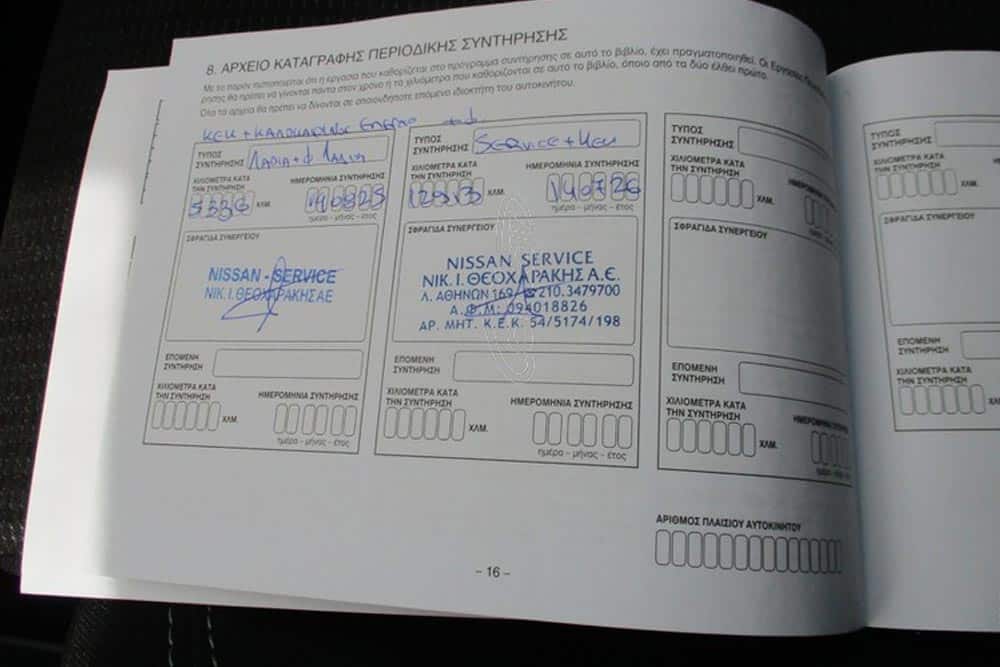 8. ΑΡΧΕΙΟ ΚΑΤΑΓΡΑΦΗΣ ΠΕΡΙΟΔΙΚΗΣ ΣΥΝΤΗΡΗΣΗΣ
Με το παρόν πιστοποιείται ότι η εργασία που καθορίζεται στο πρόγραμμα συντήρησης σε αυτό το βιβλίο, έχει πραγματοποιηθεί. Οι Εργασίες
ρησης θα πρέπει να γίνονται πάντα στον χρόνο ή τα χιλιόμετρα που καθορίζονται σε αυτό το βιβλίο, όποιο από τα δύο έλθει πρώτο.
Όλα τα αρχεία θα πρέπει να δίνονται σε οποιονδήποτε επόμενο ιδιοκτήτη του αυτοκινήτου.
ΚΕΚ +
ΤΥΠΟΣ ΣΥΝΤΗΡΗΣΗΣ
ΧΙΛΙΟΜΕΤΡΑ ΚΑΤΑ ΤΗΝ ΣΥΝΤΗΡΗΣΗ
ΧΛΜ.
ΗΜΕΡΟΜΗΝΙΑ ΣΥΝΤΗΡΗΣΗΣ
ημέρα - μήνας - έτος
ΣΦΡΑΓΙΔΑ ΣΥΝΕΡΓΕΙΟΥ
NISSAN - SERVICE
ΝΙΚ. Ι. ΘΕΟΧΑΡΑΚΗΣ ΑΕ
ΕΠΟΜΕΝΗ ΣΥΝΤΗΡΗΣΗ
ΧΙΛΙΟΜΕΤΡΑ ΚΑΤΑ ΤΗΝ ΣΥΝΤΗΡΗΣΗ
ΧΛΜ.
ΗΜΕΡΟΜΗΝΙΑ ΣΥΝΤΗΡΗΣΗΣ
ημέρα - μήνας - έτος
ΤΥΠΟΣ ΣΥΝΤΗΡΗΣΗΣ
SERVICE + ΚΕΚ
ΧΙΛΙΟΜΕΤΡΑ ΚΑΤΑ ΤΗΝ ΣΥΝΤΗΡΗΣΗ
ΧΛΜ.
ΗΜΕΡΟΜΗΝΙΑ ΣΥΝΤΗΡΗΣΗΣ
ημέρα - μήνας - έτος
ΣΦΡΑΓΙΔΑ ΣΥΝΕΡΓΕΙΟΥ
NISSAN SERVICE
ΝΙΚ. Ι. ΘΕΟΧΑΡΑΚΗΣ Α.Ε.
Λ. ΑΘΗΝΩΝ 169 ☎ 210.3479700
Α.Φ.Μ.: 094018826
ΑΡ. ΜΗΤ. Κ.Ε.Κ. 54/5174/198
ΕΠΟΜΕΝΗ ΣΥΝΤΗΡΗΣΗ
ΧΙΛΙΟΜΕΤΡΑ ΚΑΤΑ ΤΗΝ ΣΥΝΤΗΡΗΣΗ
ΧΛΜ.
ΗΜΕΡΟΜΗΝΙΑ ΣΥΝΤΗΡΗΣΗΣ
ημέρα - μήνας - έτος
ΤΥΠΟΣ ΣΥΝΤΗΡΗΣΗΣ
ΧΙΛΙΟΜΕΤΡΑ ΚΑΤΑ ΤΗΝ ΣΥΝΤΗΡΗΣΗ
ΧΛΜ.
ΗΜΕΡΟΜΗΝΙΑ
ΣΦΡΑΓΙΔΑ ΣΥΝΕΡΓΕΙΟΥ
ΕΠΟΜΕΝΗ ΣΥΝΤΗΡΗΣΗ
ΧΙΛΙΟΜΕΤΡΑ ΚΑΤΑ ΤΗΝ ΣΥΝΤΗΡΗΣΗ
ΧΛΜ.
ΗΜΕΡΟΜΗΝΙΑ
ΑΡΙΘΜΟΣ ΠΛΑΙΣΙΟΥ ΑΥΤΟΚΙΝΗΤΟΥ
- 16 -
ΤΥΠΟΣ ΣΥΝΤΗΡΗΣΗΣ
ΧΙΛΙΟΜΕΤΡΑ ΚΑΤΑ ΤΗΝ ΣΥΝΤΗΡΗΣΗ
ΧΛΜ.
ΣΦΡΑΓΙΔΑ ΣΥΝΕΡΓΕΙΟΥ
ΕΠΟΜΕΝΗ ΣΥΝΤΗΡΗΣΗ
ΧΙΛΙΟΜΕΤΡΑ ΚΑΤΑ ΤΗΝ ΣΥΝΤΗΡΗΣΗ
ΧΛΜ.